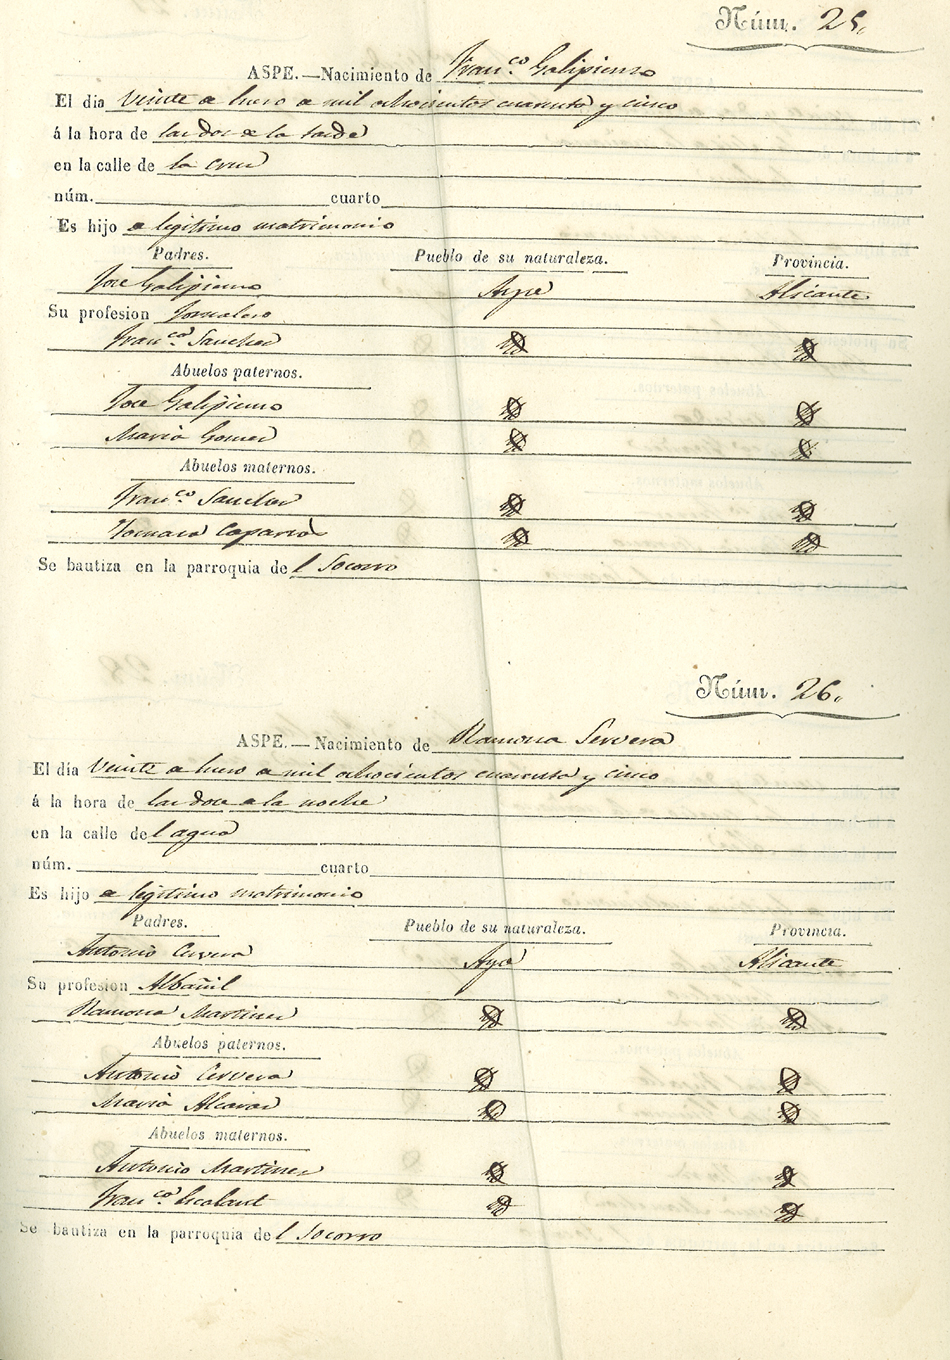 Núm. 25.
ASPE.—Nacimiento de Franco. Galipienso
El día Veinte de Enero de mil ochocientos cuarenta y cinco
á la hora de las dos de la tarde
en la calle de la Cruz
núm. cuarto
Es hijo de legitimo matrimonio
Padres. Pueblo de su naturaleza. Provincia.
Jose Galipienso Aspe Alicante
Su profesion Jornalero
Franco. Sanchez
Abuelos paternos.
Jose Galipienso
Maria Gomez
Abuelos maternos.
Franco. Sanchez
Tomasa Caparros
Se bautiza en la parroquia del Socorro
Núm. 26.
ASPE.—Nacimiento de Ramona Servera
El día Veinte de Enero de mil ochocientos cuarenta y cinco
á la hora de las doce de la noche
en la calle del agua
núm. cuarto
Es hijo de legitimo matrimonio
Padres. Pueblo de su naturaleza. Provincia.
Antonio Cervera Aspe Alicante
Su profesion Albañil
Ramona Martinez
Abuelos paternos.
Antonio Cervera
Maria Alcaraz
Abuelos maternos.
Antonio Martinez
Franco. Escolant
Se bautiza en la parroquia del Socorro